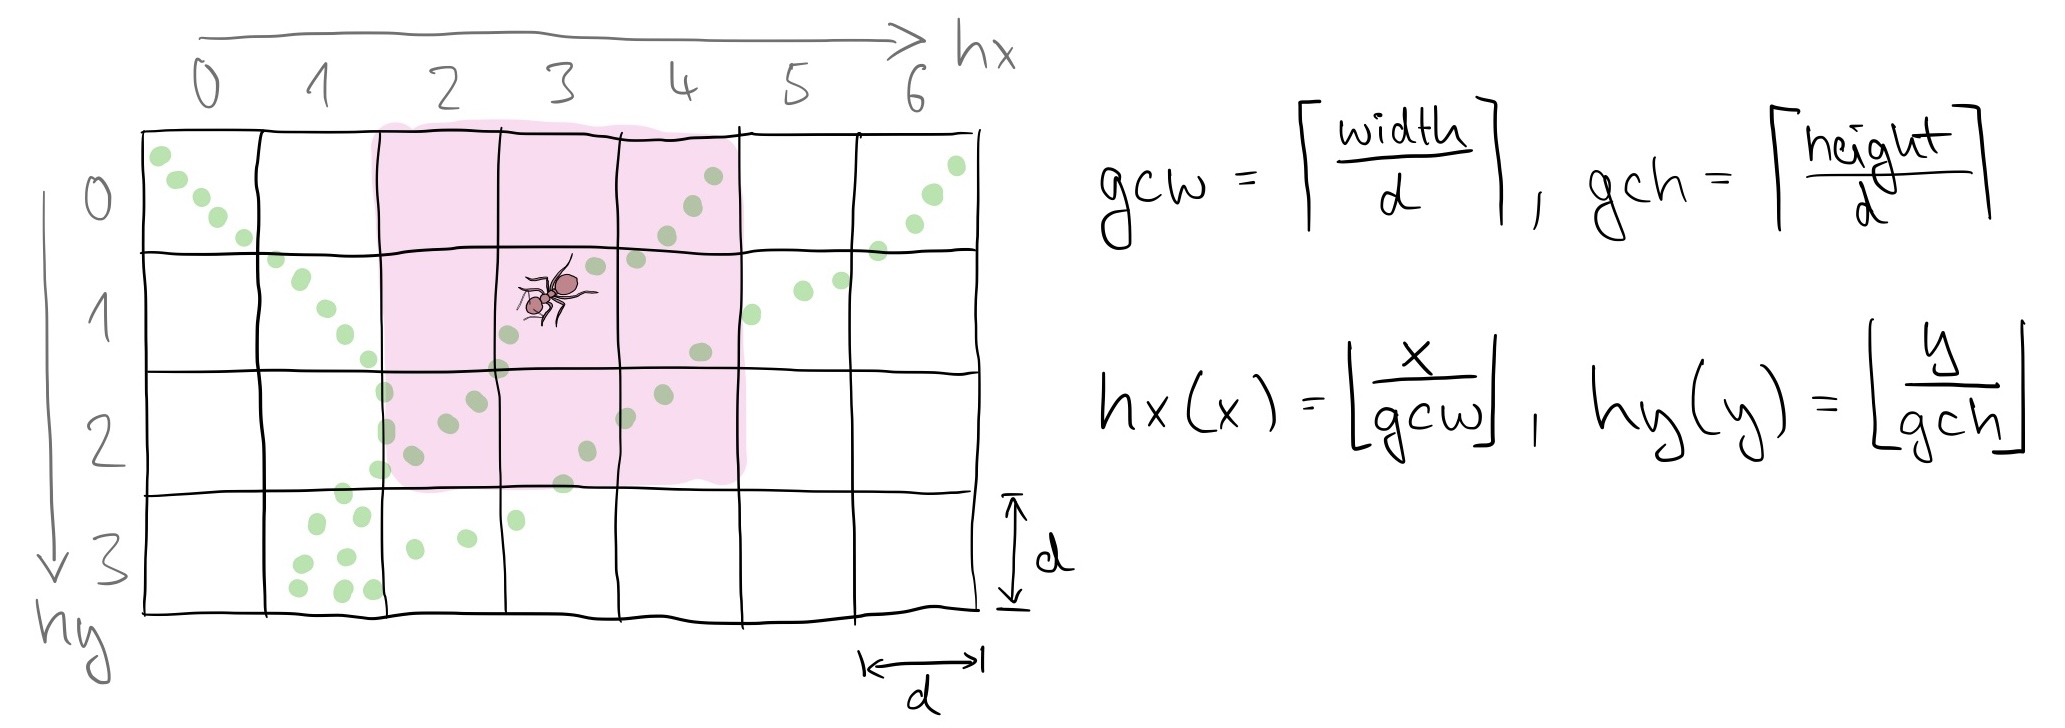 hx
0 1 2 3 4 5 6
0
1
2
3
hy
d
d
gcw = ⌈width/d⌉, gch = ⌈height/d⌉
hx(x) = ⌊x/gcw⌋, hy(y) = ⌊y/gch⌋